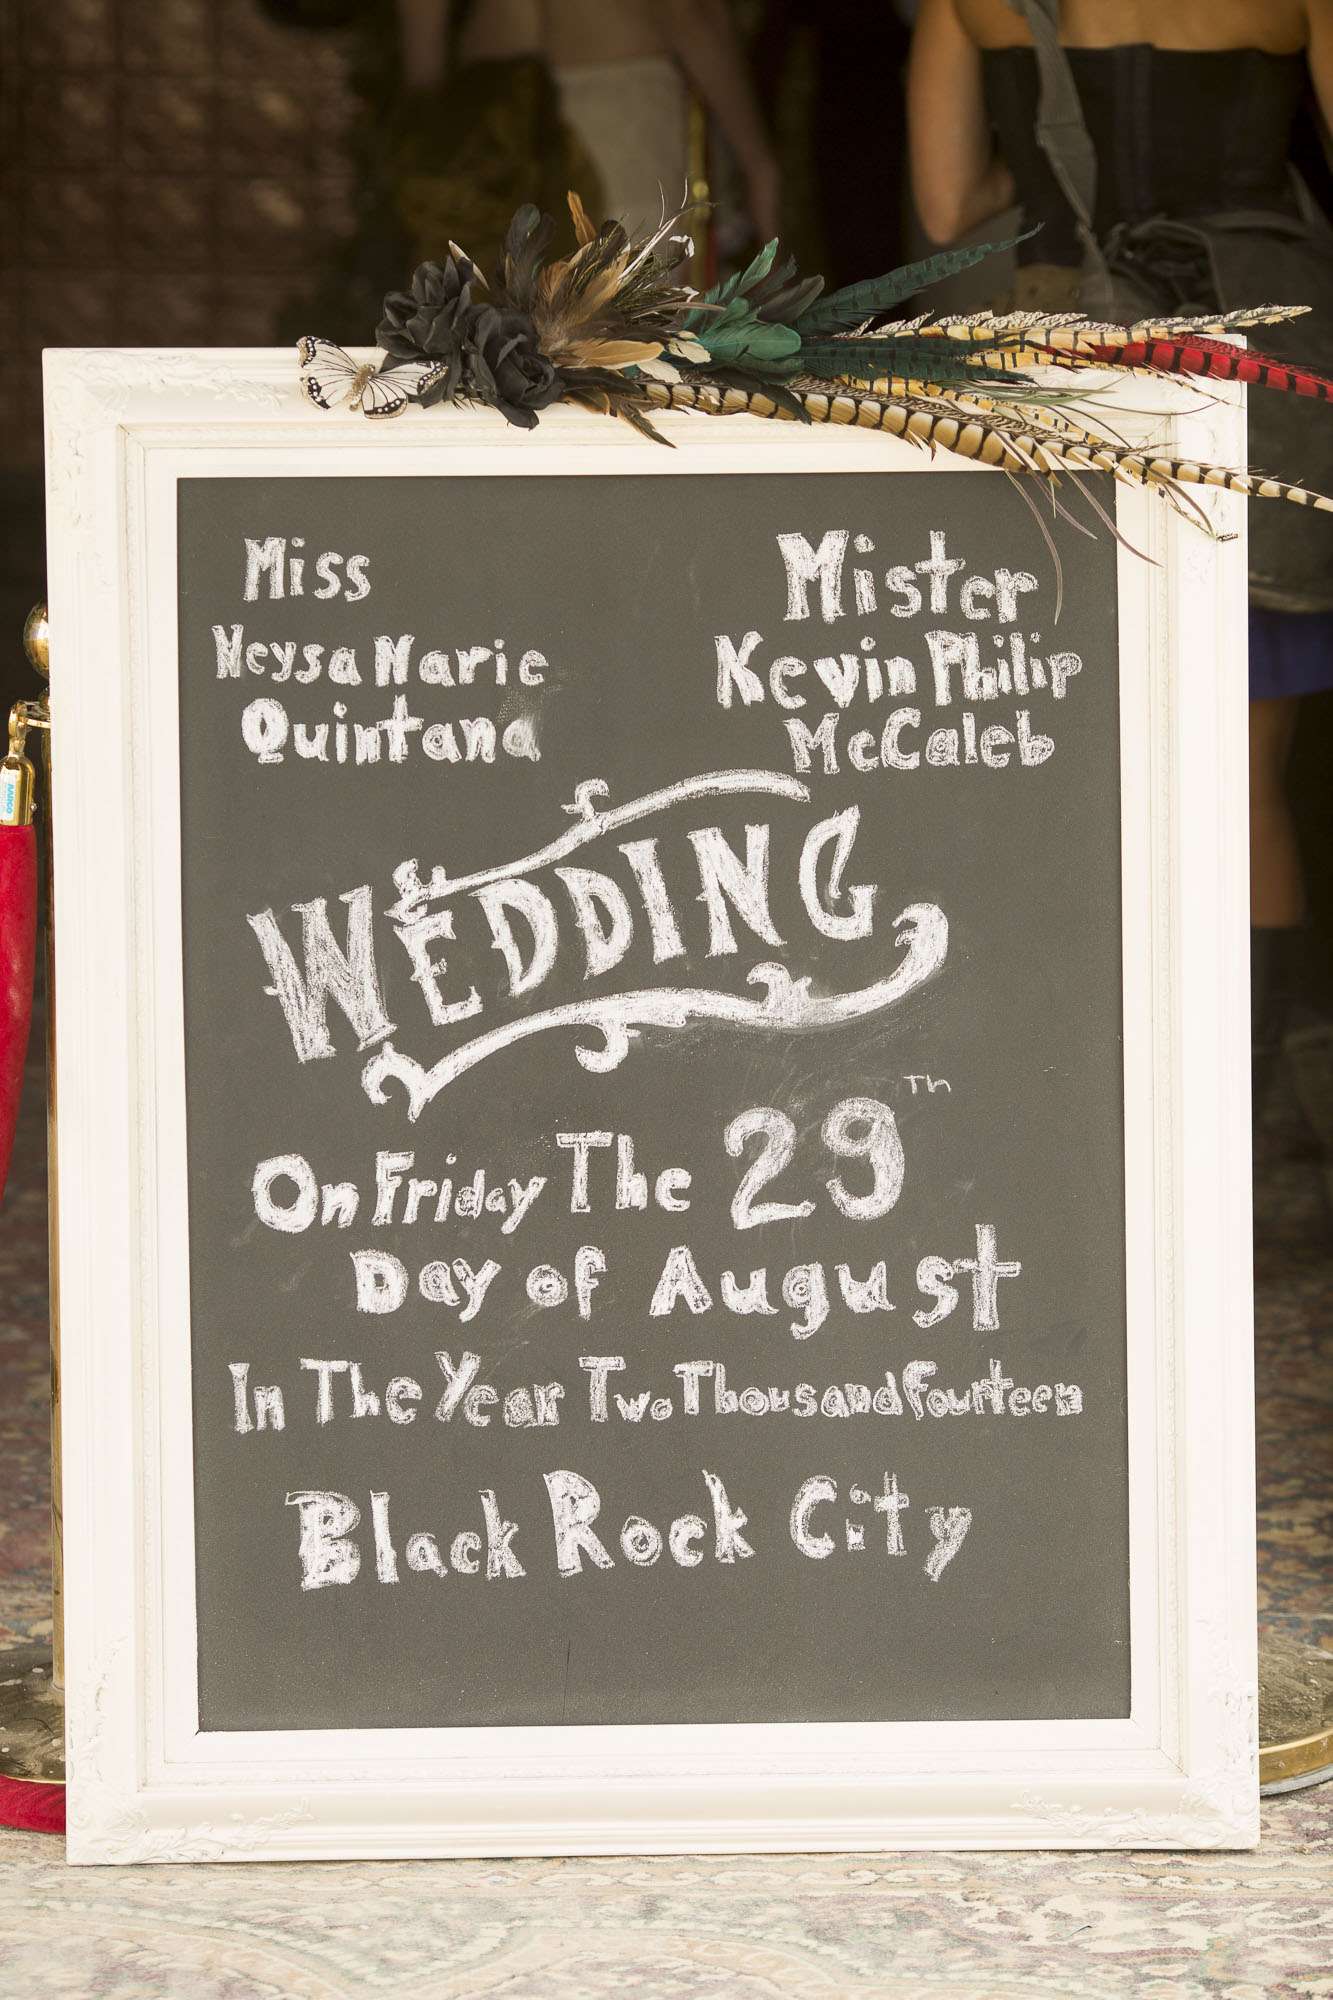 Miss
Neysa Narie
Quintana
Mister
Kevin Philip
McCaleb
WEDDING
On Friday The 29Th
Day of August
In The Year Two Thousand Fourteen
Black Rock City